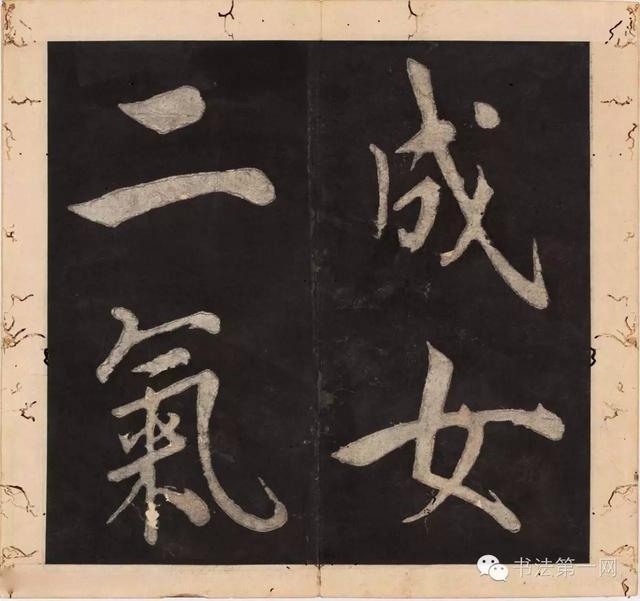 成女
二氣
书法第一网